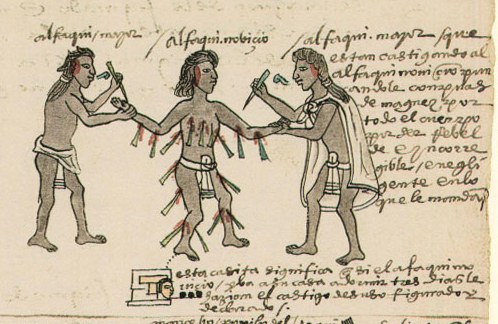 alfaqui / mayor
alfaqui. noviçio
alfaqui. mayor / que
estan castigando al
alfaqui novi/çio pun
candole con puas
de maguez por
todo el cuerpo
por ser rebel
de E yncorre
gible / e negli
gente en lo
que le mandan
esta casita significa q̄ si el alfaqui no
viçio / yva a su casa a dormir tres dias le
hazian el castigo de suso figurado y
declarado /.